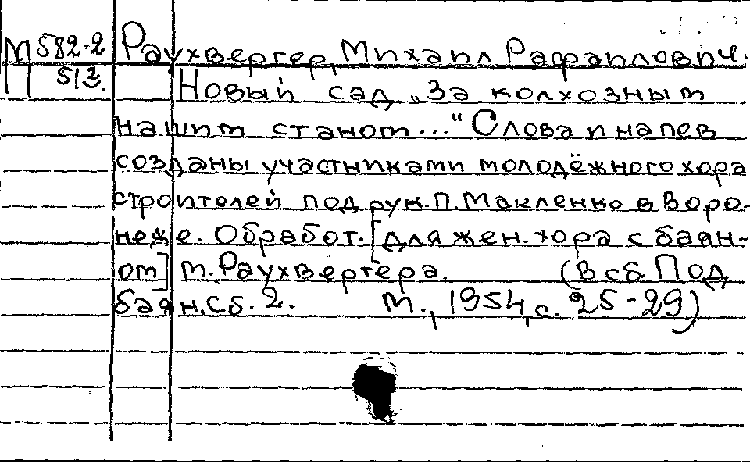 М 582-2 Раухвергер, Михаил Рафаилович.
П 513. Новый сад „За колхозным
нашим станом..." Слова и напев
созданы участниками молодёжного хора
строителей под рук. П. Макленко в Воро-
неже. Обработ. [для жен. хора с баян-
ом] М. Раухвергера. (В сб. Под
баян. Сб. 2. М., 1954, с. 25-29)